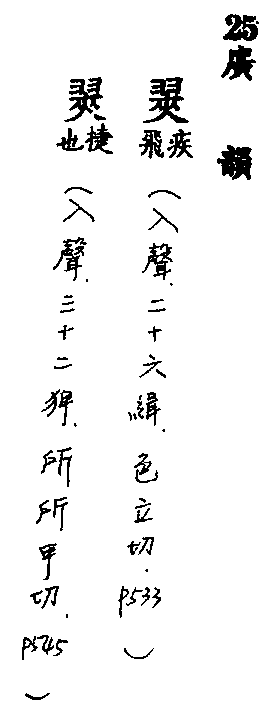 25廣韻
翜疾飛（入聲.二十六緝.色立切.P533）
翜捷也（入聲.三十二狎.所所甲切.P545）